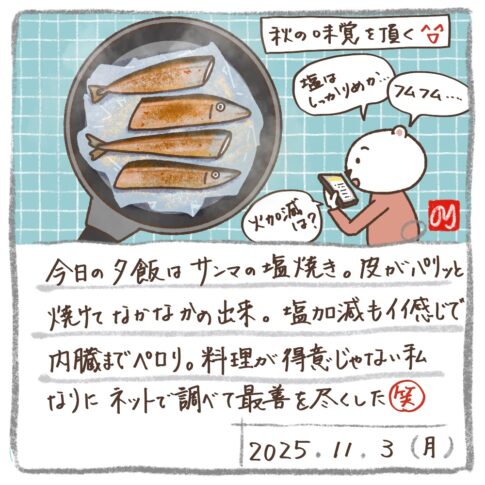 秋の味覚を頂く
塩は
しっかりめか…
フムフム…
火加減
は?
今日の夕飯はサンマの塩焼き。皮がパリッと
焼けてなかなかの出来。塩加減もイイ感じで
内臓までペロリ。料理が得意じゃない私
なりにネットで調べて最善を尽くした(笑)
2025.11.3(月)